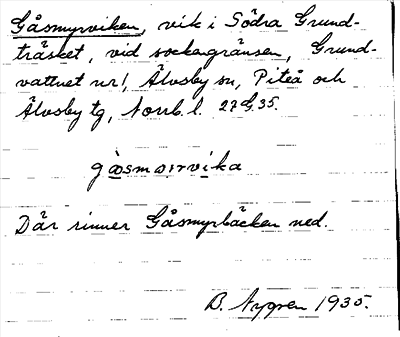 Gåsmyrviken, vik i Södra Grund-
träsket, vid sockengränsen, Grund-
vattnet nr 1, Älvsby sn, Piteå och
Älvsby tg, Norrb. l. 27 G. 35.
gåsmørvika
Där rinner Gåsmyrbäcken ned.
B. Nygren 1935.